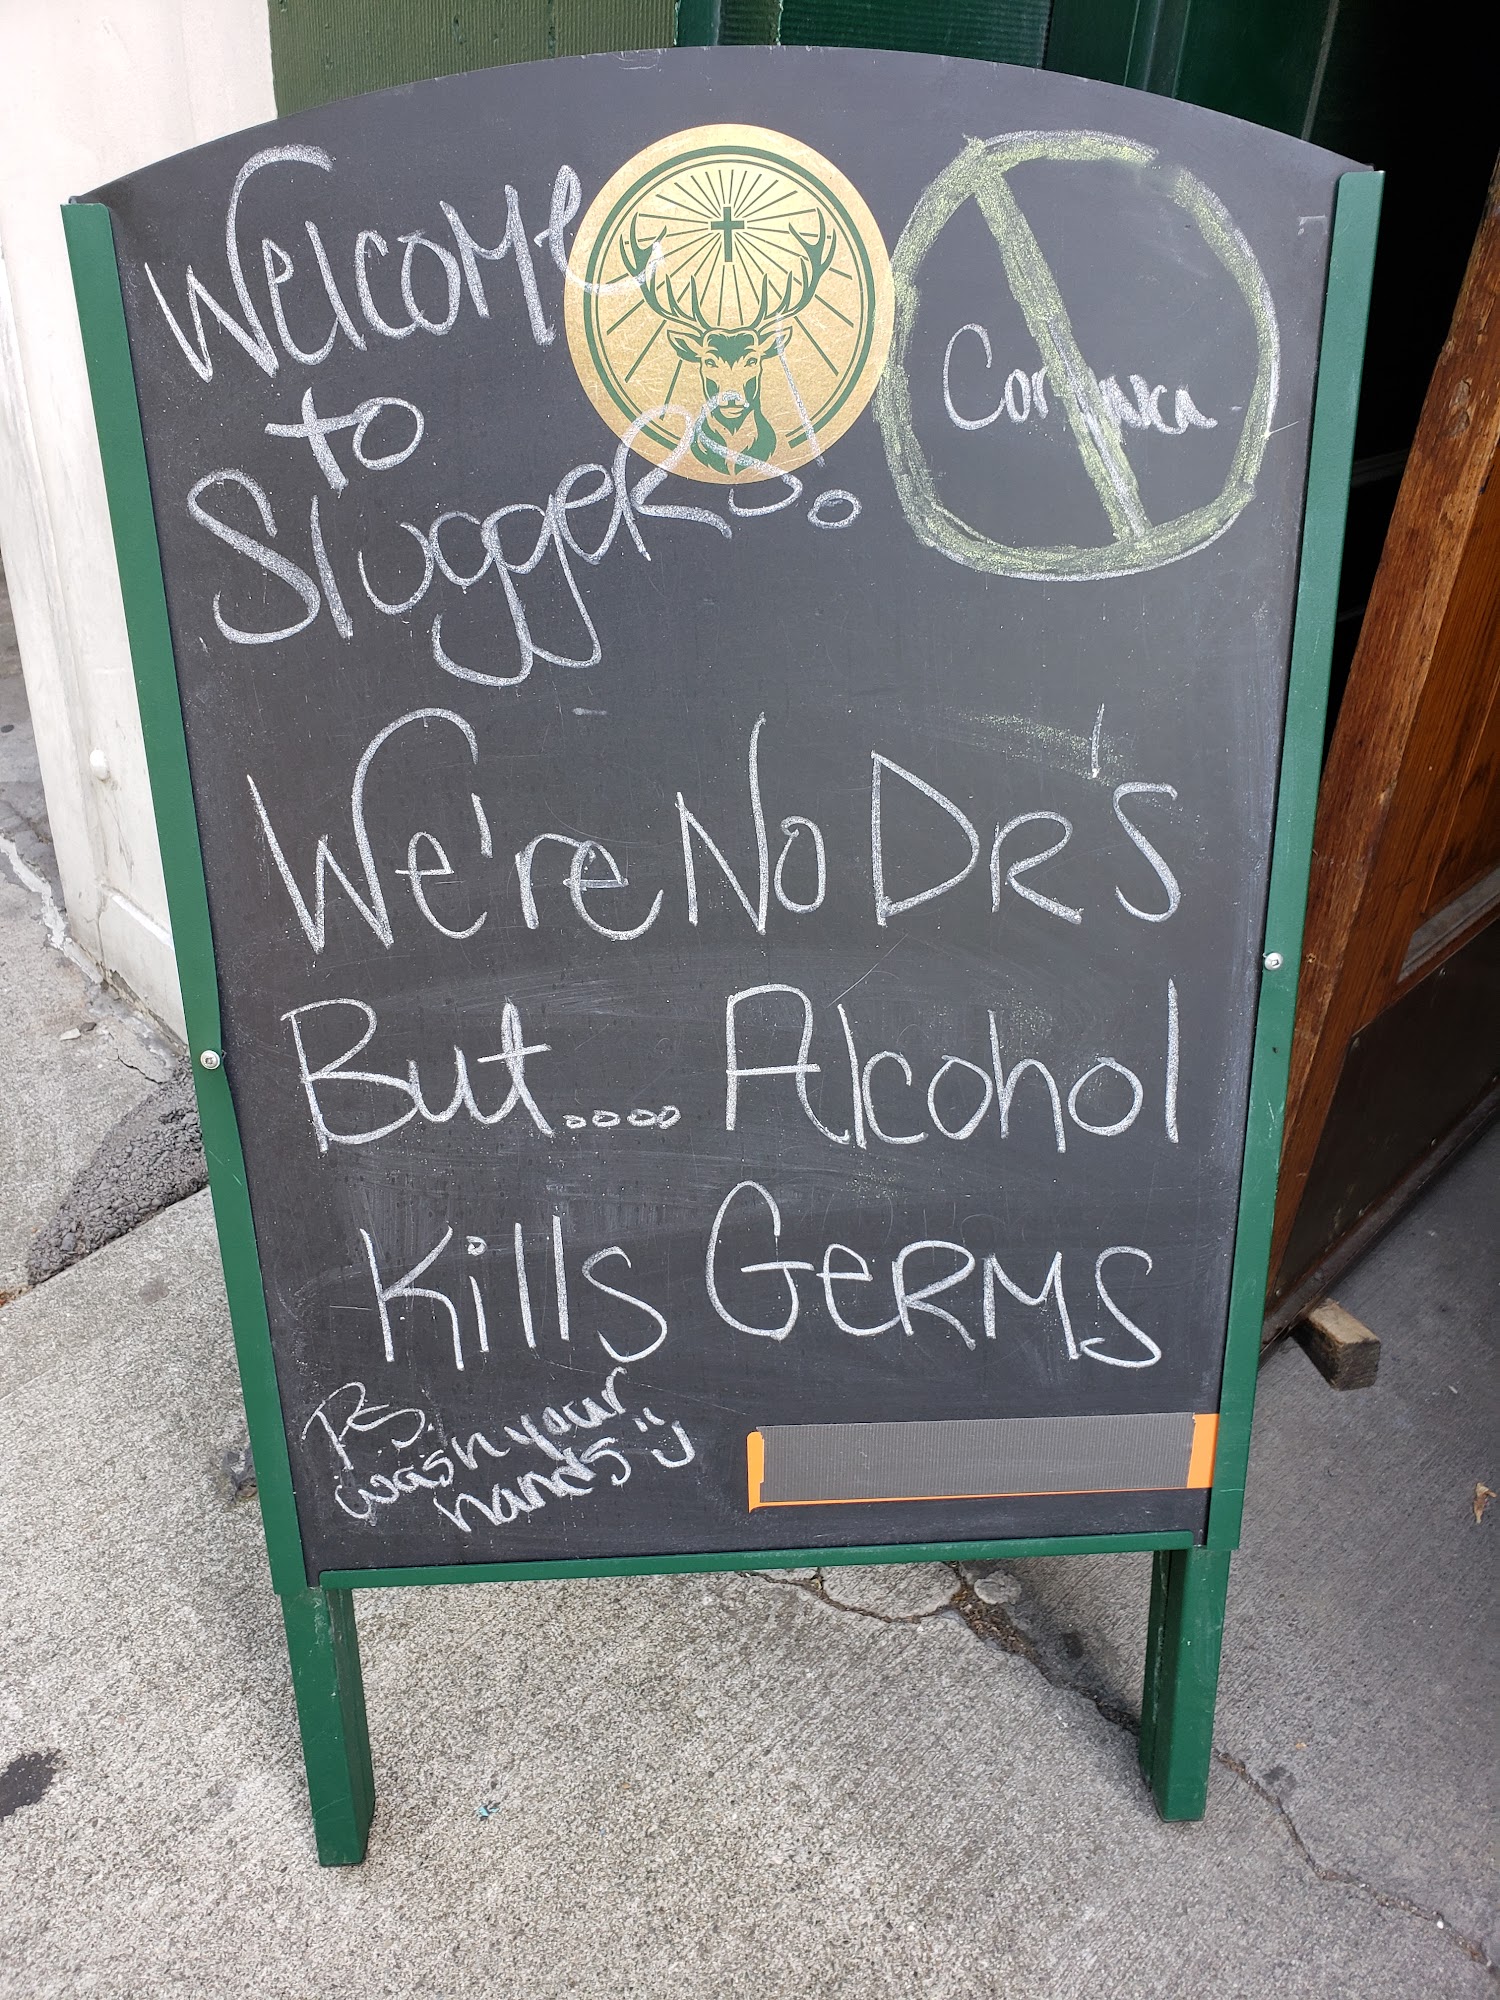 Welcome
to
Sluggers!
We're No DR's
But.... Alcohol
Kills GeRMS
P.S.
wash your
hands